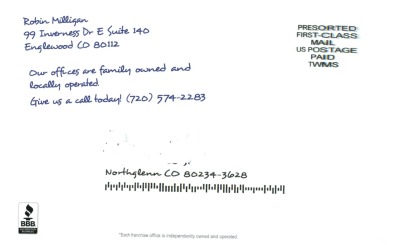 Robin Milligan
99 Inverness Dr E Suite 140
Englewood CO 80112
PRESORTED
FIRST-CLASS
MAIL
US POSTAGE
PAID
TWMS
Our offices are family owned and
locally operated.
Give us a call today! (720) 574-2283
Northglenn CO 80234-3628
BBB
*Each franchise office is independently owned and operated.